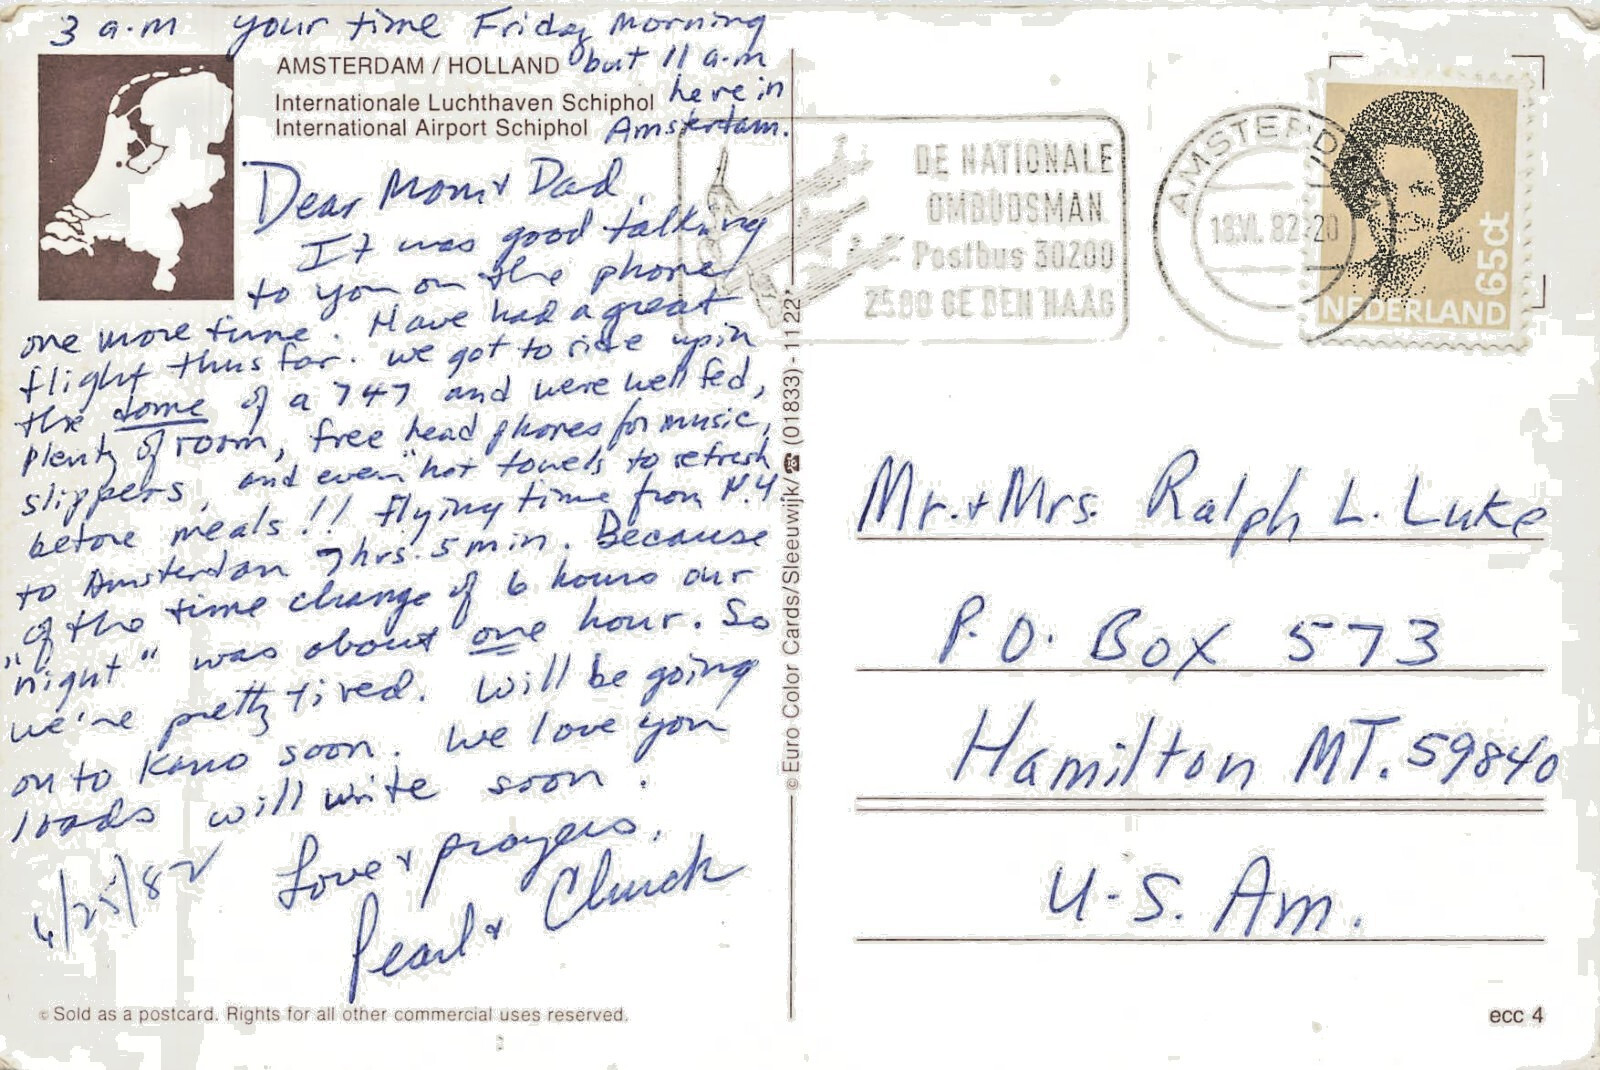 3 a.m your time Friday Morning
but 11 a.m
here in
Amsterdam.
AMSTERDAM / HOLLAND
Internationale Luchthaven Schiphol
International Airport Schiphol
Dear Mom & Dad,
It was good talking
to you on the phone
one more time. Have had a great
flight thus far. We got to ride up in
the dome of a 747 and were well fed,
plenty of room, free head phones for music,
slippers, and even hot towels to refresh
before meals!! flying time from N.Y
to Amsterdam 7 hrs. 5 min. Because
of the time change of 6 hours our
"night" was about one hour. So
we're pretty tired. Will be going
on to Kano soon. We love you
loads will write soon.
Love & prayers,
Pearl & Chuck
6/25/82
© Sold as a postcard. Rights for all other commercial uses reserved.
© Euro Color Cards/Sleeuwijk/☎ (01833) - 1122
DE NATIONALE
OMBUDSMAN
Postbus 30200
2500 GE DEN HAAG
AMSTERD
18.VI.82-20
NEDERLAND 65ct
Mr. & Mrs. Ralph L. Luke
P.O. Box 573
Hamilton MT. 59840
U.S. Am.
ecc 4